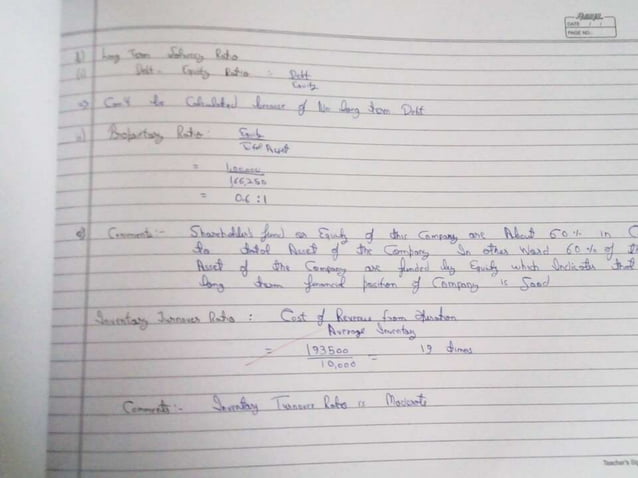 DATE / /
PAGE NO.
b) Long Term Solvency Ratio
(i) Debt - Equity Ratio = Debt
Equity
=> Can't be Calculated because of No Long term Debt
Proportary Ratio : Equity
Total Asset
= 1,00,000
166,250
= 0.6 : 1
Comments :- Shareholder's fund or Equity of this Company are About 60% in
to total Asset of the Company In other Word 60% of
Asset of the Company are funded by Equity which Indicates that
long term financial position of Company is Good
Inventory Turnover Ratio : Cost of Revenue from Operation
Average Inventory
= 193500 = 19 times
10,000
Comments :- Inventory Turnover Ratio is Moderate
Teacher's